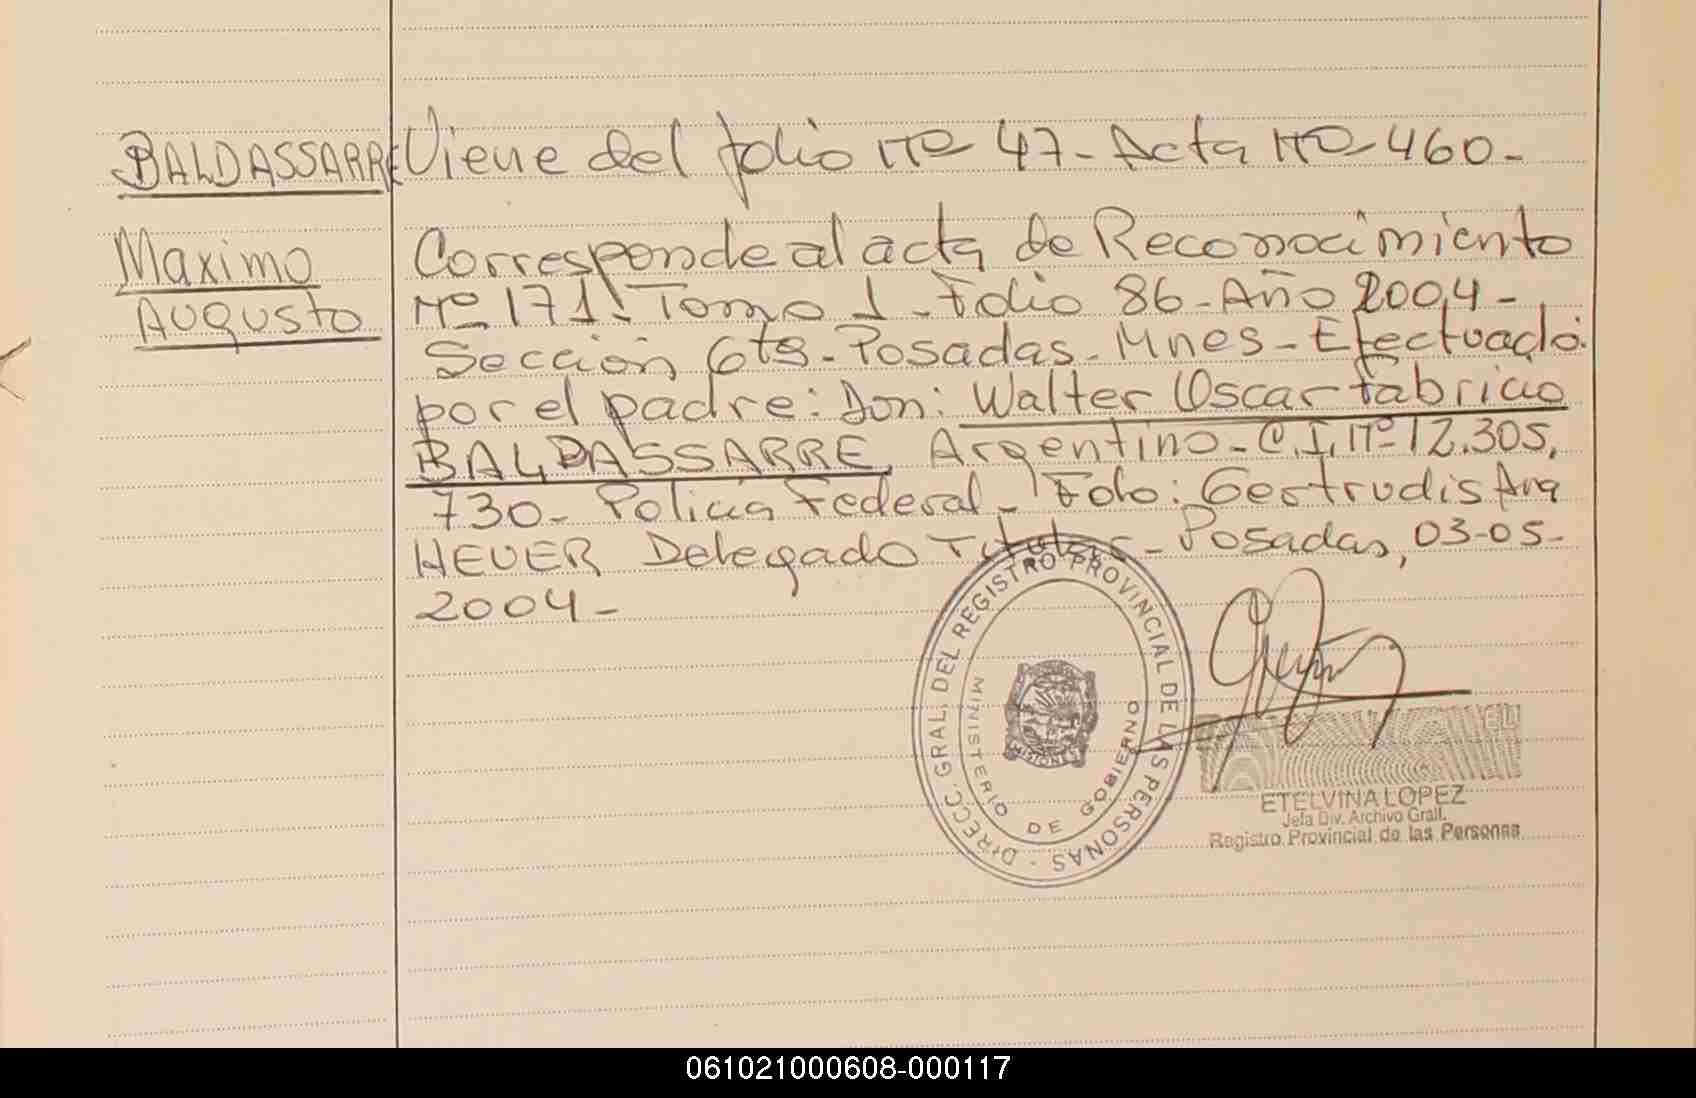 BALDASSARRE
Maximo
Augusto
Viene del folio Nº 47 - Acta Nº 460 -
Corresponde al acta de Reconocimiento
Nº 171 - Tomo 1 - Folio 86 - Año 2004 -
Sección 6ta - Posadas - Mnes - Efectuado
por el padre: Don: Walter Oscar Fabricio
BALDASSARRE, Argentino - C.I. Nº 12.305,
730 - Policia Federal - Fdo: Gertrudis Ana
HEUER Delegado Titular - Posadas, 03-05-
2004 -
DIRECC. GRAL. DEL REGISTRO PROVINCIAL DE LAS PERSONAS -
MINISTERIO DE GOBIERNO
MISIONES
ETELVINA LOPEZ
Jefa Div. Archivo Grall.
Registro Provincial de las Personas
061021000608-000117